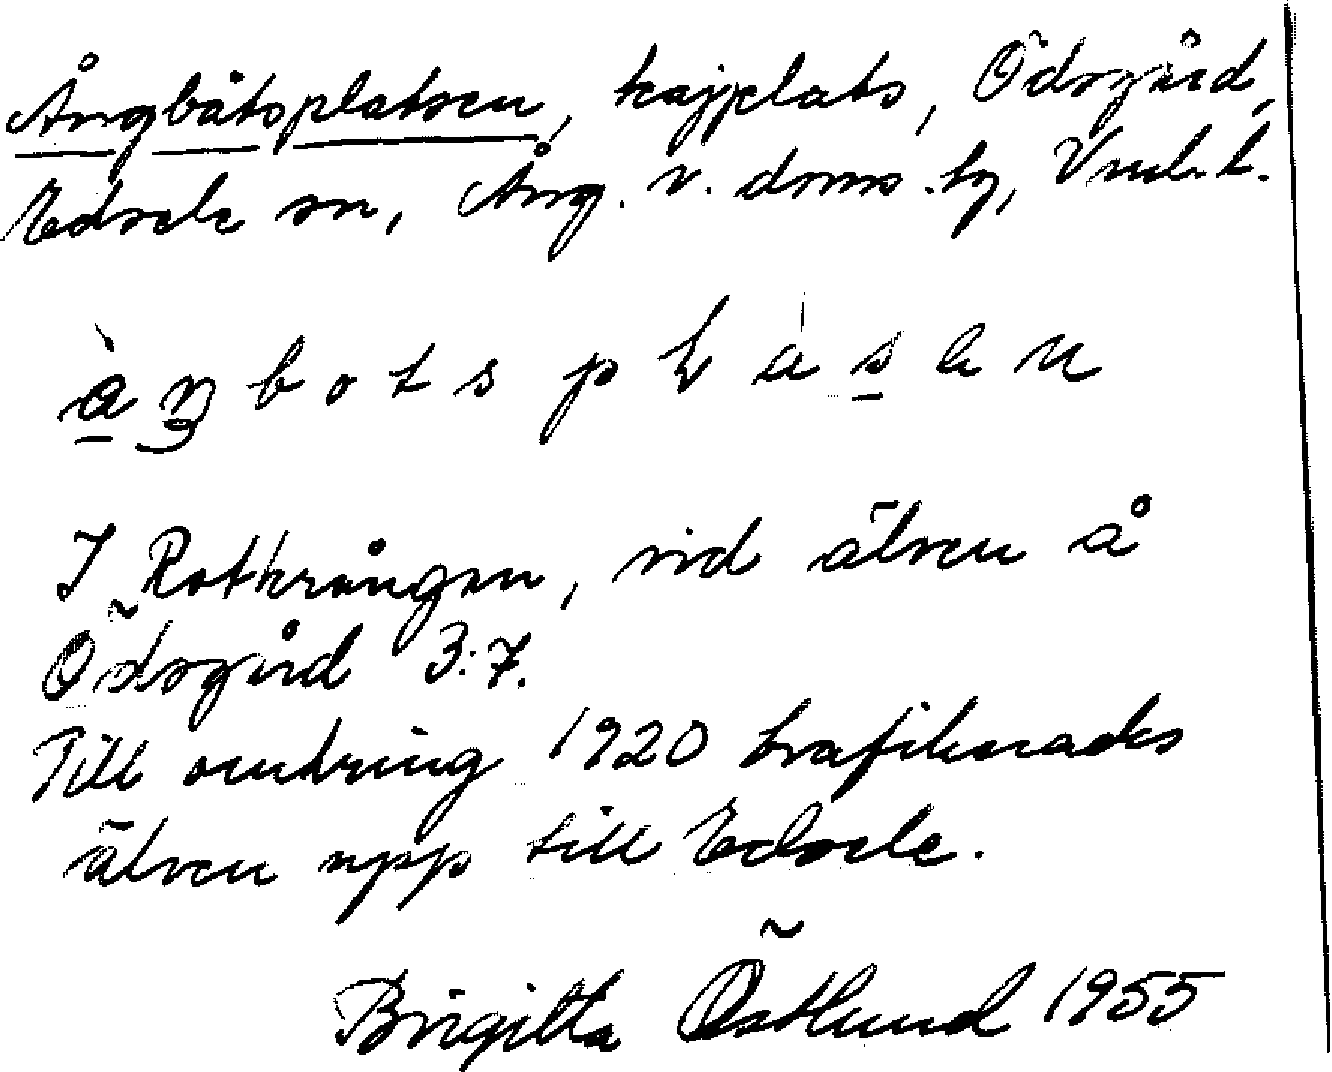 Ångbåtsplatsen, kajplats, Ödsgård,
Edsele sn, Ång. v. doms. tg, Vnl. l.
I Rotkrången, vid älven å
Ödsgård 3:7.
Till omkring 1920 trafikerades
älven upp till Edsele.
Birgitta Östlund 1955